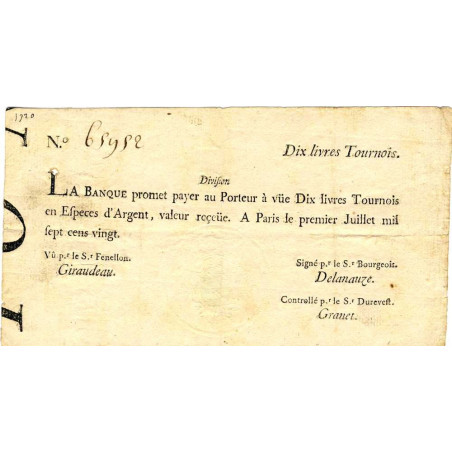 1720
N.o 65952
Dix livres Tournois.
Division
LA BANQUE promet payer au Porteur à vûë Dix livres Tournois
en Eſpeces d'Argent, valeur reçeüe. A Paris le premier Juillet mil
ſept cens vingt.
Vû p.r le S.r Fenellon.
Giraudeau.
Signé p.r le S.r Bourgeois.
Delanauze.
Controllé p.r le S.r Dureveſt.
Granet.